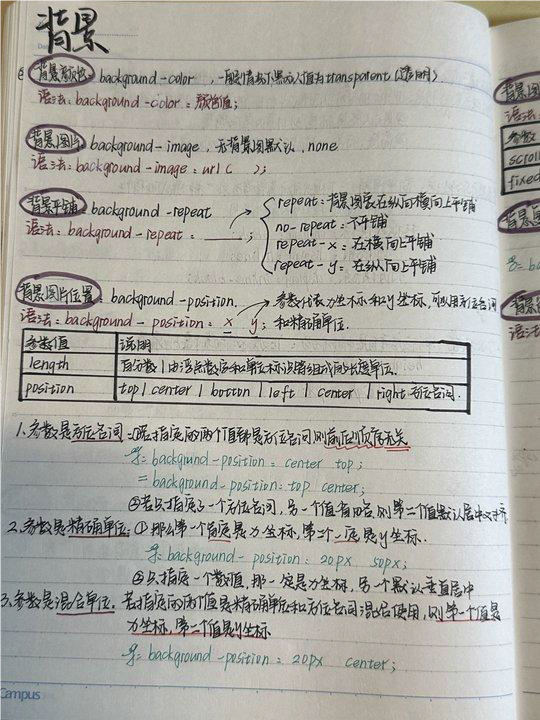 背景
背景颜色: background-color, 一般情况下默认值为transparent(透明).
语法: background-color: 颜色值;
背景图片 background-image, 无背景图默认, none
语法: background-image: url( );
背景平铺 background-repeat
语法: background-repeat: ____;
repeat: 背景图象在纵向横向上平铺
no-repeat: 不平铺
repeat-x: 在横向上平铺
repeat-y: 在纵向上平铺
背景图片位置: background-position.
参数代表x坐标和y坐标, 可以用方位名词
语法: background-position: x y; 和精确单位.
参数值 说明
length 百分数|由浮点数字和单位标识符组成的长度单位.
position top | center | botton | left | center | right 方位名词.
1. 参数是方位名词: ①若指定的两个值都是方位名词则前后顺序无关
background-position: center top;
= background-position: top center;
②若只指定了一个方位名词, 另一个值省略则第二个值默认居中对齐
2. 参数是精确单位: ①那么第一个肯定是x坐标, 第二个一定是y坐标.
background-position: 20px 50px;
②只指定一个数值, 那一定是x坐标, 另一个默认垂直居中
3. 参数是混合单位. 若指定的两个值是精确单位和方位名词混合使用, 则第一个值是
x坐标, 第二个值是y坐标
background-position: 20px center;
Campus
语法:
参数
scroll
fixed
语法